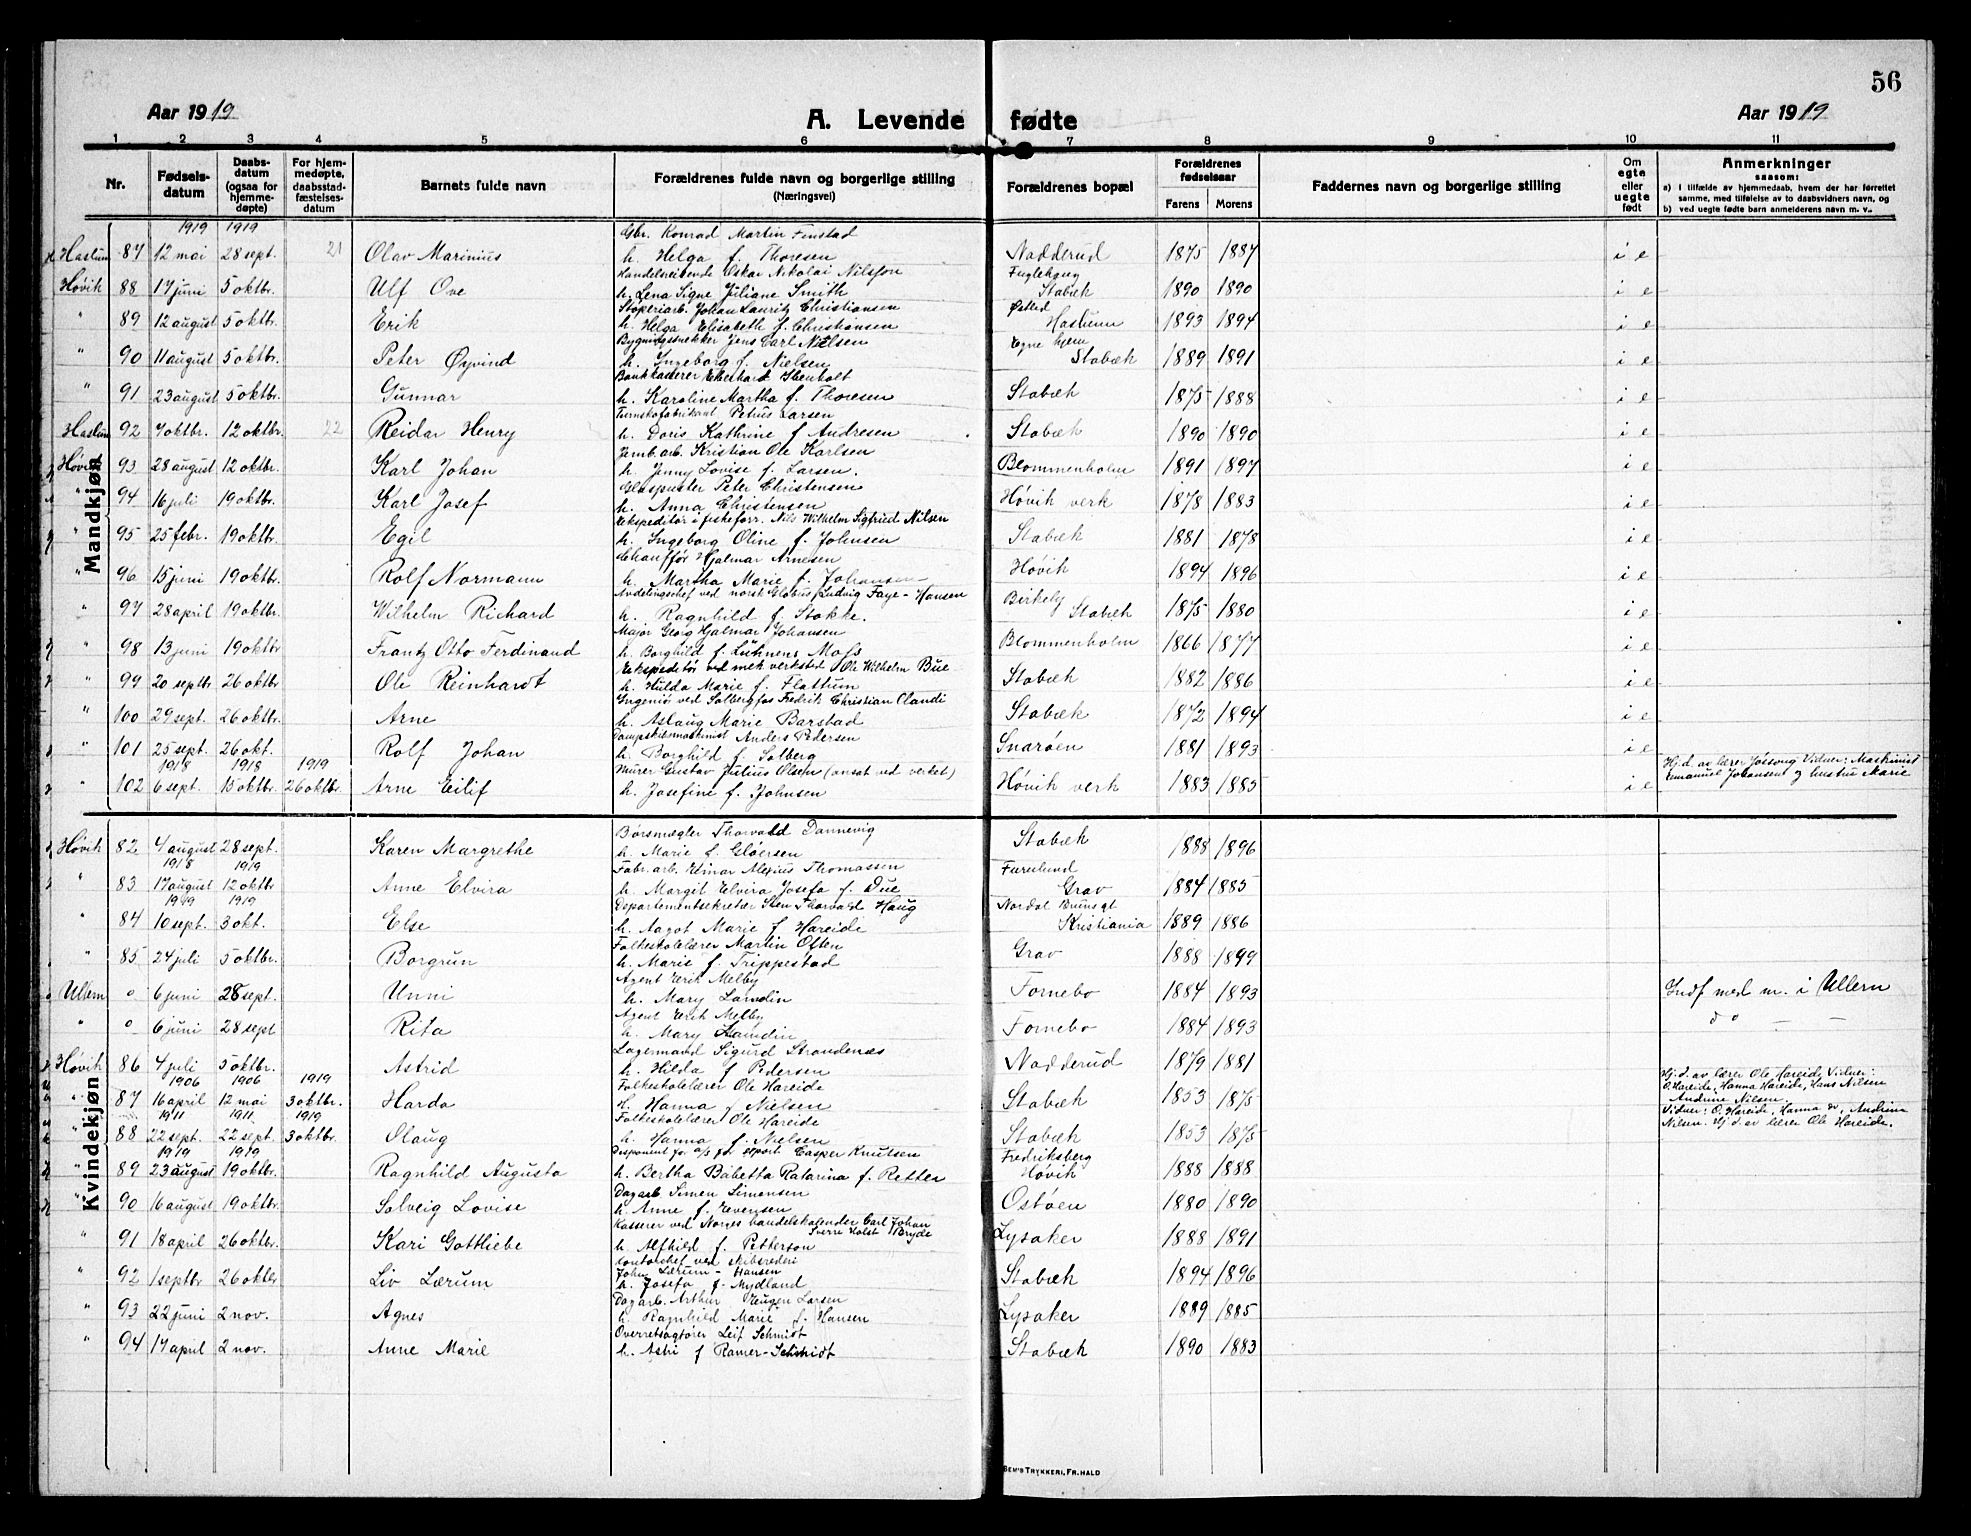 56
Aar 1919
A. Levende fødte
Aar 1919
1 2 3 4 5 6 7 8 9 10 11
Nr.
Fødselsdatum
Daabsdatum (ogsaa for hjemmedøpte)
For hjemmedøpte, daabsstadfæstelsesdatum
Barnets fulde navn
Forældrenes fulde navn og borgerlige stilling
(Næringsvei)
Forældrenes bopæl
Forældrenes fødselsaar
Farens Morens
Faddernes navn og borgerlige stilling
Om egte eller uegte født
Anmerkninger
saasom:
a) I tilfælde av hjemmedaab, hvem der har forrettet
samme, med tilføielse av to daabsvidners navn, og
b) ved uegte fødte barn anmelderens navn m. v.
Mandkjøn
1919 1919
Gbr. Konrad Martin Finstad
Haslum 87 12 mai 28 sept. 21 Olav Marinius h. Helga f. Thoresen Nadderud 1875 1887 i e
Handelsreisende Oskar Nikolai Nilsson
Høvik 88 17 juni 5 oktbr. Ulf Ove h. Lena Signe Juliane Smith Fuglehaug Stabæk 1890 1890 i e
Støperiarb. Johan Lauritz Christiansen
" 89 12 august 5 oktbr. Erik h. Helga Elisabeth f. Christiansen Østled Haslum 1893 1894 i e
Bygningssnekker Jens Carl Nielsen
" 90 11 august 5 oktbr. Peter Øyvind h. Ingeborg f. Nielsen Egne hjem Stabæk 1889 1891 i e
Bankkaserer Eberhard Stenholt
" 91 23 august 5 oktbr. Gunnar h. Karoline Martha f. Thoresen Stabæk 1875 1888 i e
Turnskofabrikant Petrus Larsen
Haslum 92 7 oktbr. 12 oktbr. 22 Reidar Henry h. Doris Kathrine f. Andresen Stabæk 1890 1890 i e
Jernb.arb. Kristian Ole Karlsen
Høvik 93 28 august 12 oktbr. Karl Johan h. Jenny Lovise f. Larsen. Blommenholm 1891 1897 i e
Glaspuster Peter Christensen
" 94 16 juli 19 oktbr. Karl Josef h. Anna Christensen Høvik verk 1878 1883 i e
Ekspeditør i fiskeforr. Nils Wilhelm Sigfried Nilsen
" 95 25 febr. 19 oktbr. Egil h. Ingeborg Oline f. Johnsen Stabæk 1881 1878 i e
Chauffør Hjalmar Arnesen
" 96 15 juni 19 oktbr. Rolf Normann h. Martha Marie f. Johansen Høvik 1894 1896 i e
Avdelingschef ved norsk Globus Ludvig Faye-Hansen
" 97 28 april 19 oktbr. Wilhelm Richard h. Ragnhild f. Stokke. Birkely Stabæk 1875 1880 i e
Major Georg Hjalmar Johansen
" 98 13 juni 19 oktbr Frantz Otto Ferdinand h. Borghild f. Lühnens Moss Blommenholm 1866 1877 i e
Ekspeditør ved mek verksted Ole Wilhelm Bue
" 99 20 septbr 26 oktbr Ole Reinhardt h. Hulda Marie f. Flattum Stabæk 1882 1886 i e
Ingeniør ved Solbergfos Fredrik Christian Claudi
" 100 29 sept. 26 oktbr. Arne h. Aslaug Marie Barstad Stabæk 1872 1894 i e
Dampskibsmaskinist Anders Pedersen
" 101 25 sept. 26 okt. Rolf Johan h. Borghild f. Solberg Snarøen 1881 1893 i e
1918 1918 1919
Murer Gustav Julius Olsen (ansat ved verket)
" 102 6 sept. 15 oktbr. 26 oktbr. Arne Eilif h. Josefine f. Johnsen Høvik verk 1883 1885 i e
Hj.d. av lærer Jossong Vidner: Maskinist
Emanuel Johansen og hustru Marie
Kvindekjøn
Børsmægler Thorvald Dannevig
Høvik 82 4 august 28 sept. Karen Margrethe h. Marie f. Gløersen Stabæk 1888 1896
1918 1919
Fabr.arb. Einar Alexius Thomassen
" 83 17 august 12 oktbr Anne Elvira h. Margit Elvira Josefa f. Due Furulund Grav 1884 1885
1919 1919
Departementsekretær Sten Thorvald Haug
" 84 10 sept. 3 okt. Else h. Aagot Marie f. Hareide Nordal Brunsgt Kristiania 1889 1886
Folkeskolelærer Martin Often
" 85 24 juli 5 oktbr. Borgrun h. Marie f. Trippestad Grav 1888 1899
Agent Erik Melby
Ullern o 6 juni 28 sept. Unni h. Mary Lamdin Fornebo 1884 1893 Indf med m. i Ullern
Agent Erik Melby
" o 6 juni 28 sept Rita h. Mary Lamdin Fornebo 1884 1893 do — —
Lagermand Sigurd Strandenæs
Høvik 86 4 juli 5 oktbr. Astrid h. Hilda f. Pedersen Nadderud 1879 1881
1906 1906 1919
Folkeskolelærer Ole Hareide
" 87 16 april 12 mai 3 oktbr. Harda H. Hanna f. Nielsen Stabæk 1853 1875
Hj.d. av lærer Ole Hareide Vidner:
O. Hareide, Hanna Hareide, Hans Nilsen
Andrine Nilsen.
1911 1911 1919
Folkeskolelærer Ole Hareide
" 88 22 sept. 22 sept. 3 oktbr. Olaug h. Hanna f. Nielsen Stabæk 1853 1875
Vidner: O. Hareide, Hanna do, Andrine
Nilsen. Hj.d. av lærer Ole Hareide.
1919 1919
Disponent for a/s for export Casper Knutsen
" 89 23 august 19 oktbr. Ragnhild Augusta h. Bertha Babetta Katarina f. Retter Fredriksberg Høvik 1888 1888
Dagarb. Simen Simensen
" 90 16 august 19 oktbr. Solveig Lovise h. Anne f. Evensen Ostøen 1880 1890
Kasserer ved Norges handelskalender Carl Johan
Sverre Holst Bryde
" 91 18 april 26 oktbr. Kari Gottliebe h. Alfhild f. Petterson Lysaker 1888 1891
Kontorchef ved skibsrederi
John Lærum-Hansen
" 92 1 septbr 26 oktbr Liv Lærum h. Josefa f. Mydland Stabæk 1894 1896
Dagarb. Arthur Eugen Larsen
" 93 22 juni 2 nov. Agnes h. Ragnhild Marie f. Hansen Lysaker 1889 1885
Overretssagfører Leif Schmidt
" 94 17 april 2 nov. Anne Marie h. Asbi f Ramer-Schmidt Stabæk 1890 1883
BEM'S TRYKKERI, FR.HALD